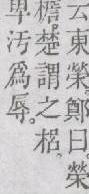 云東榮鄭曰榮
櫩楚謂之梠
卑汚爲辱